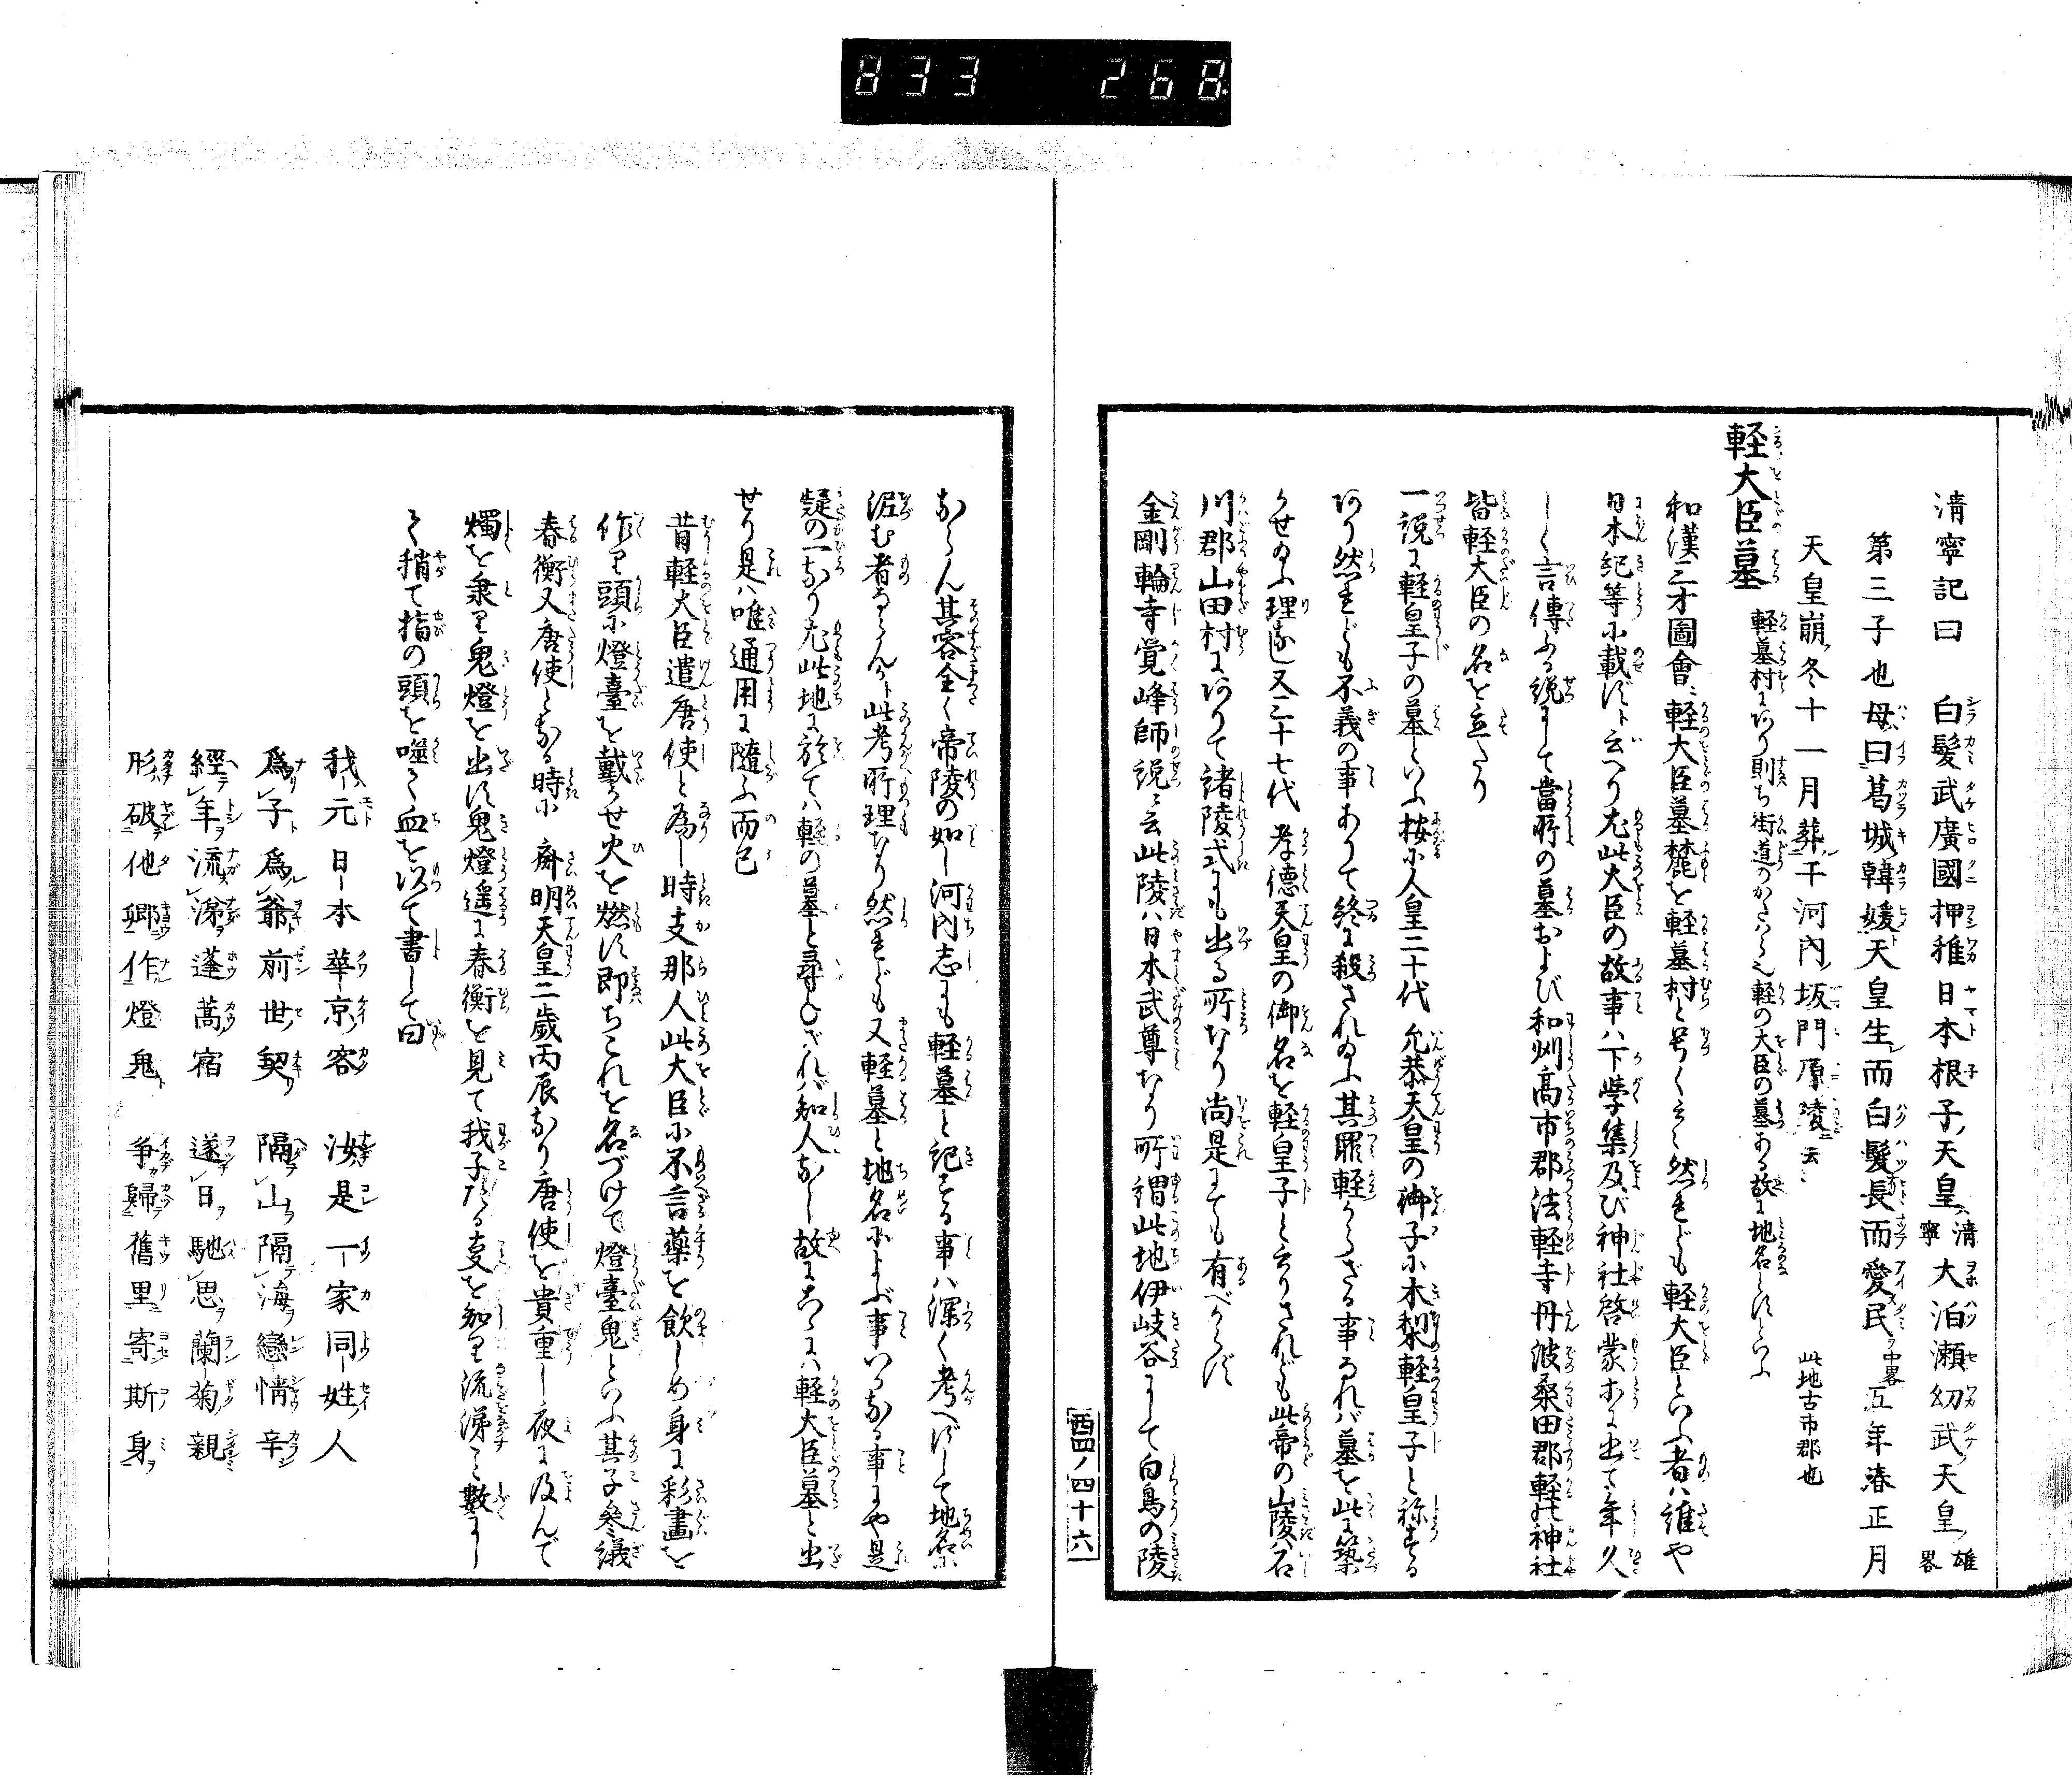 833 268
清寧記曰 白髪武廣國押稚日本根子天皇清寧大泊瀬幼武天皇雄畧
第三子也母曰葛城韓媛天皇生而白髪長而愛民中畧五年春正月
天皇崩冬十一月葬于河内坂門原陵云々 此地古市郡也
軽大臣墓 軽墓村にあり則ち街道のかたはら也軽の大臣の墓ある故に地名とすといふ
和漢三才圖會ニ軽大臣墓麓を軽墓村と号くと云々然れども軽大臣といふ者ハ誰や
日本紀等に載ずト云へり尤此大臣の故事ハ下学集及び神社啓蒙等に出て年久
しく言傳ふる説にして當所の墓および和州高市郡法軽寺丹波桑田郡軽の神社
皆軽大臣の名を立たり
一説に軽皇子の墓といふ按に人皇二十代 允恭天皇の御子に木梨軽皇子と称する
あり然れども不義の事ありて終に殺されぬふ其罪軽からざる事なれバ墓を此に築
かせぬふ理なし又三十七代 孝徳天皇の御名を軽皇子と云りされども此帝の山陵ハ石
川郡山田村にありて諸陵式にも出る所なり尚是にても有べからず
金剛輪寺覚峰師説ニ云此陵ハ日本武尊なり所謂此地伊岐谷にして白鳥の陵
西四ノ四十六
ならん其容全く帝陵の如し河内志にも軽墓と記する事ハ深く考へずして地名に
泥む者ならんか卜此考所理なり然れども又軽墓と地名によぶ事いかなる事にや是
疑の一なり尤此地に於てハ軽の墓と尋ねざれバ知人なし故にこゝにハ軽大臣墓と出
せり是ハ唯通用に隨ふ而已
昔軽大臣遣唐使と為し時支那人此大臣に不言薬を飲しめ身に彩畫を
作り頭に燈臺を戴かせ火を燃す即ちこれを名づけて燈臺鬼といふ其子参議
春衡又唐使となる時に 斉明天皇二歳丙辰なり唐使を貴重し夜に及んで
燭を秉り鬼燈を出す鬼燈遥に春衡を見て我子たる叓を知り流涕して數し
て稍て指の頭を噬て血を以て書して曰
我元日本華京客 汝是一家同姓人
爲子爲爺前世契 隔山隔海戀情辛
經年流涕蓬蒿宿 遂日馳思蘭菊親
形破他郷作燈鬼 争歸舊里寄斯身